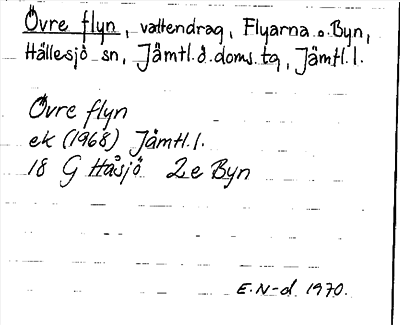 Övre flyn, vattendrag, Flyarna o. Byn,
Hällesjö sn, Jämtl. ö. doms. tg, Jämtl. l.
Övre flyn
ek (1968) Jämtl. l.
18 G Håsjö 2e Byn
E. N-d. 1970.